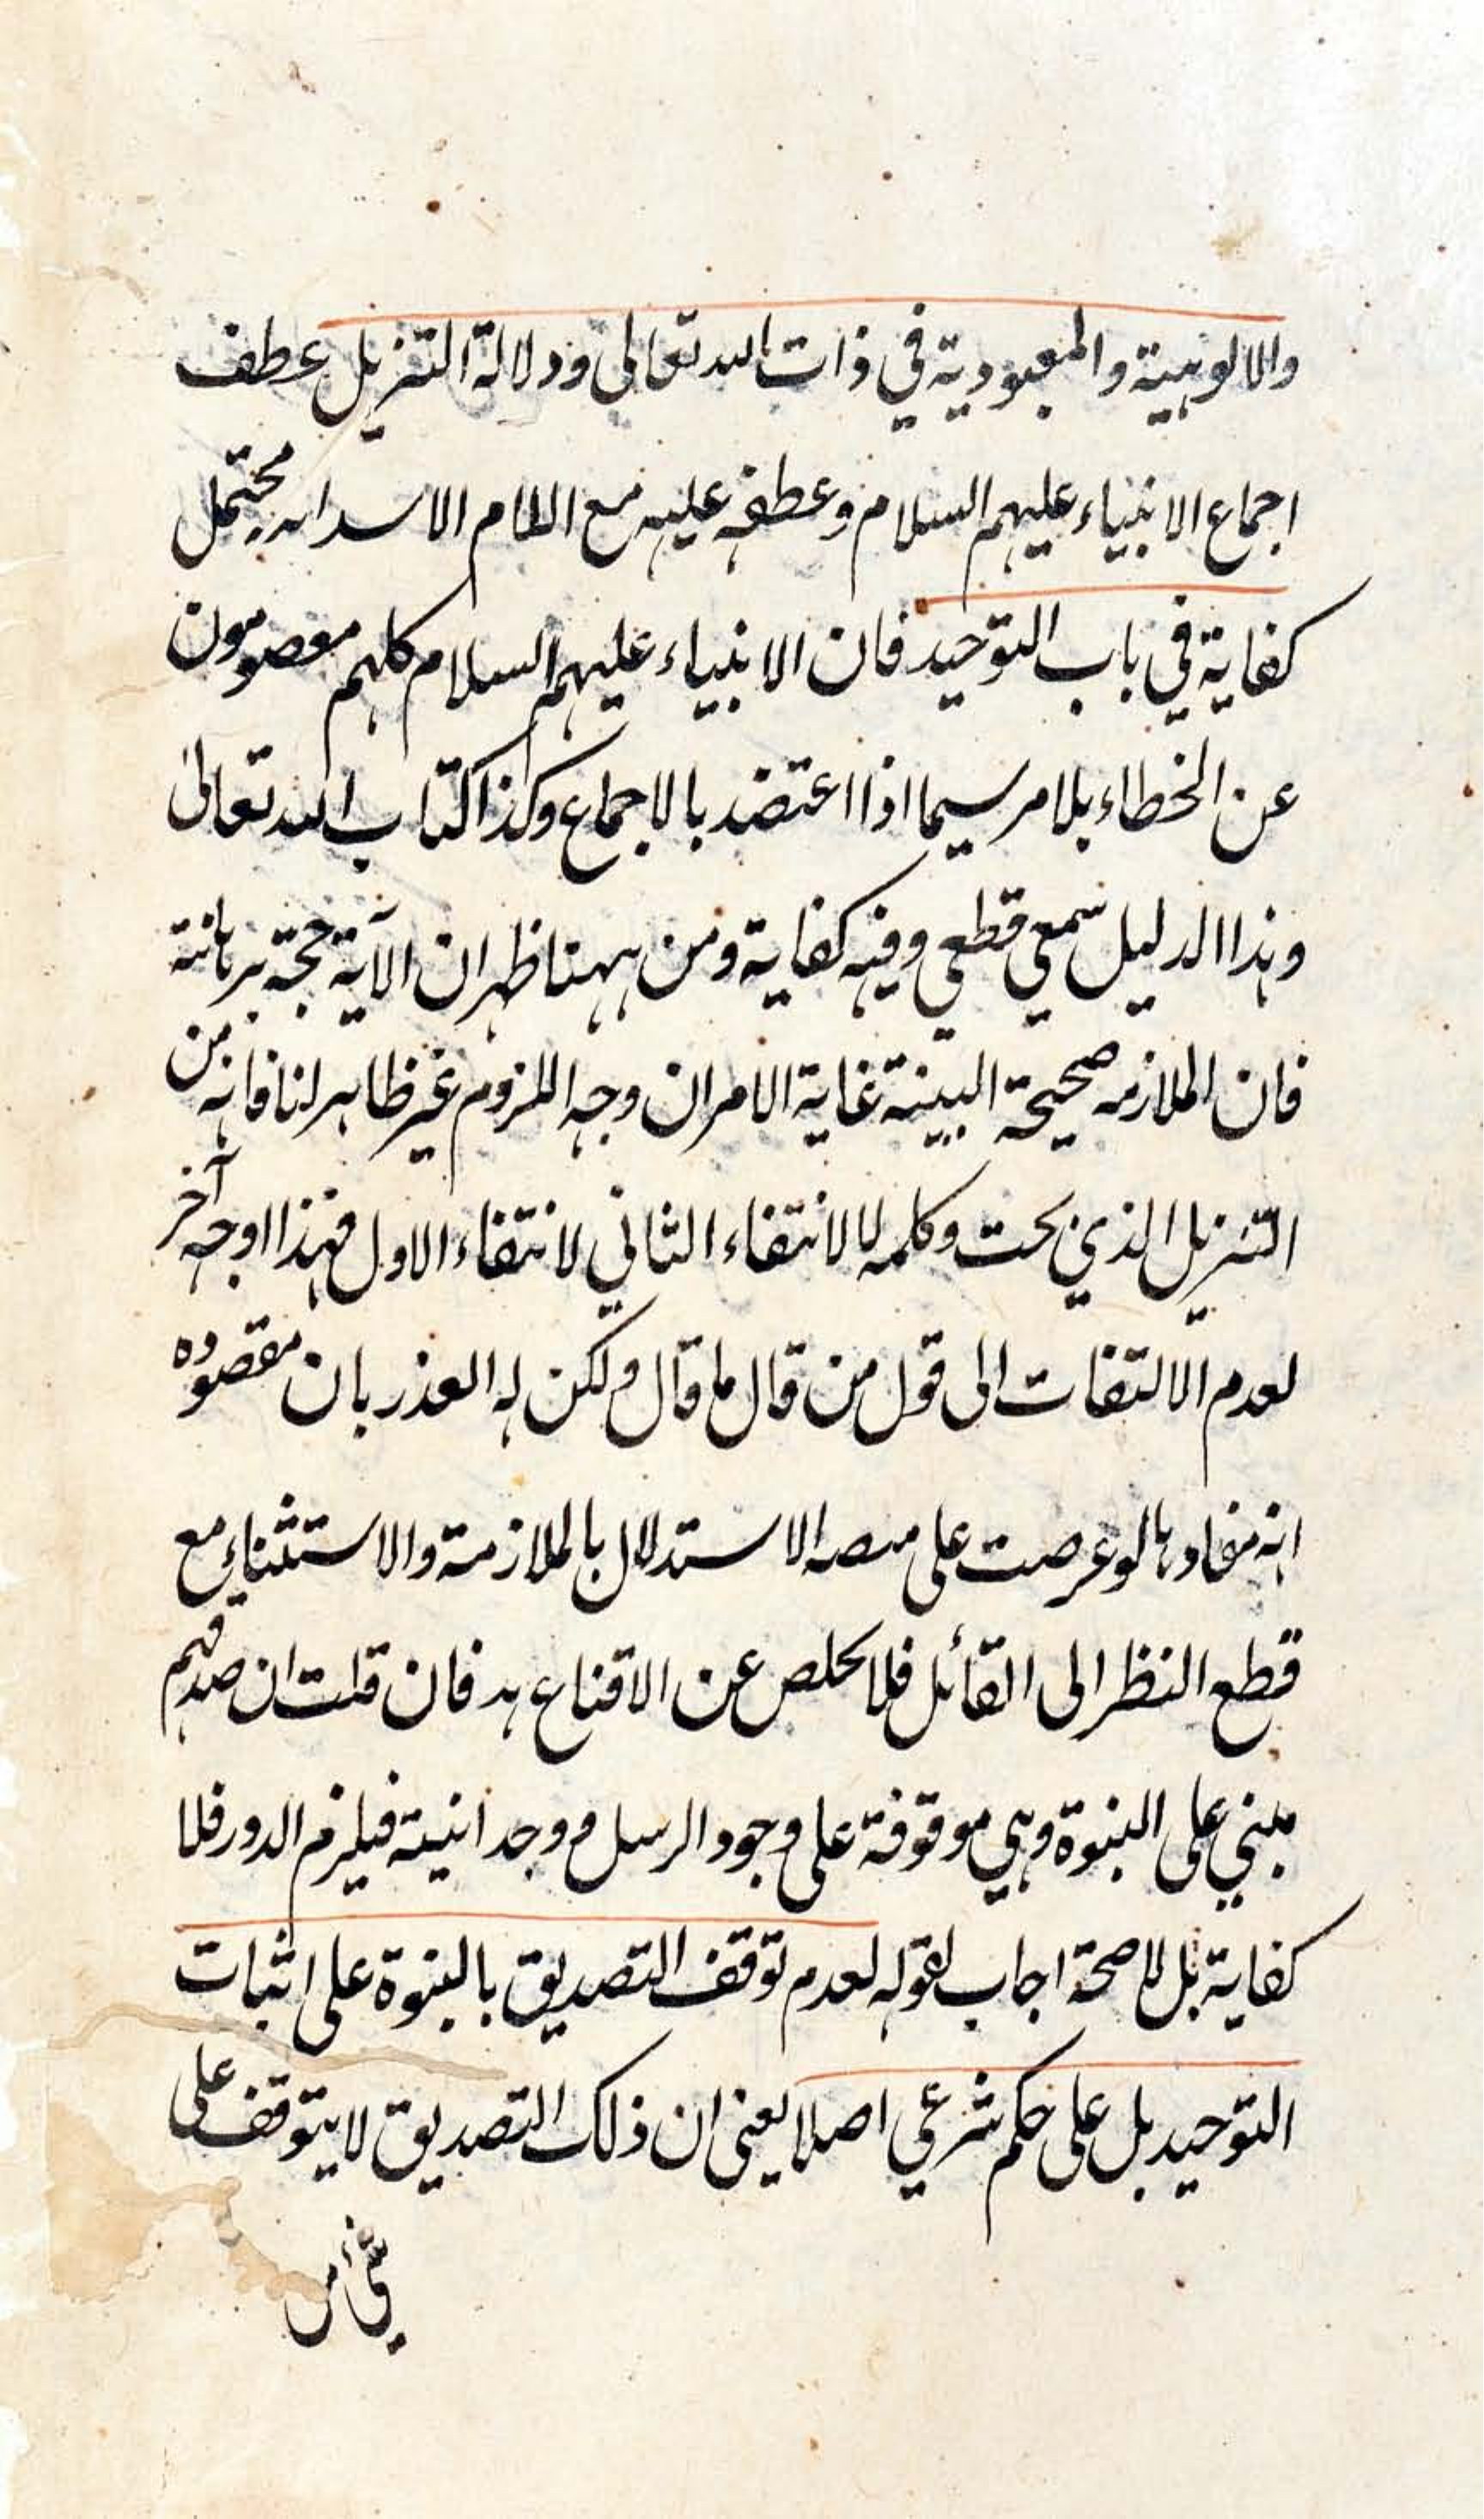 والالوهية والمعبودية في ذات الله تعالى ودلالة التنزيل عطف
اجماع الانبياء عليهم السلام وعطفه عليه مع محتمل
كفاية في باب التوحيد فان الانبياء عليهم السلام كلهم معصومون
عن الخطاء بلا مر سيما اذا اعتضد بالاجماع وكذا كتاب الله تعالى
وهذا الدليل سمعي قطعي وفيه كفاية ومن ههنا ظهر ان الآية حجة برهانية
فان الملازمه صحيحة البينة غاية الامر ان وجه اللزوم غير ظاهر لنا فانه من
التنزيل الذي بحت وكلمه لا لانتفاء الثاني لانتفاء الاول فهذا اوجه آخر
لعدم الالتفات الى قول من قال ما قال ولكن له العذر بان مقصوده
انه مفادها لو عرضت على منصه الاستدلال بالملازمة والاستثناء مع
قطع النظر الى القائل فلا مخلص عن الاقناع هد فان قلت ان صدقهم
مبني على النبوة وهي موقوفة على وجود الرسل ووحدانيته فيلزم الدور فلا
كفاية بل لا صحة اجاب بقوله لعدم توقف التصديق بالنبوة على اثبات
التوحيد بل على حكم شرعي اصلا يعني ان ذلك التصديق لا يتوقف على